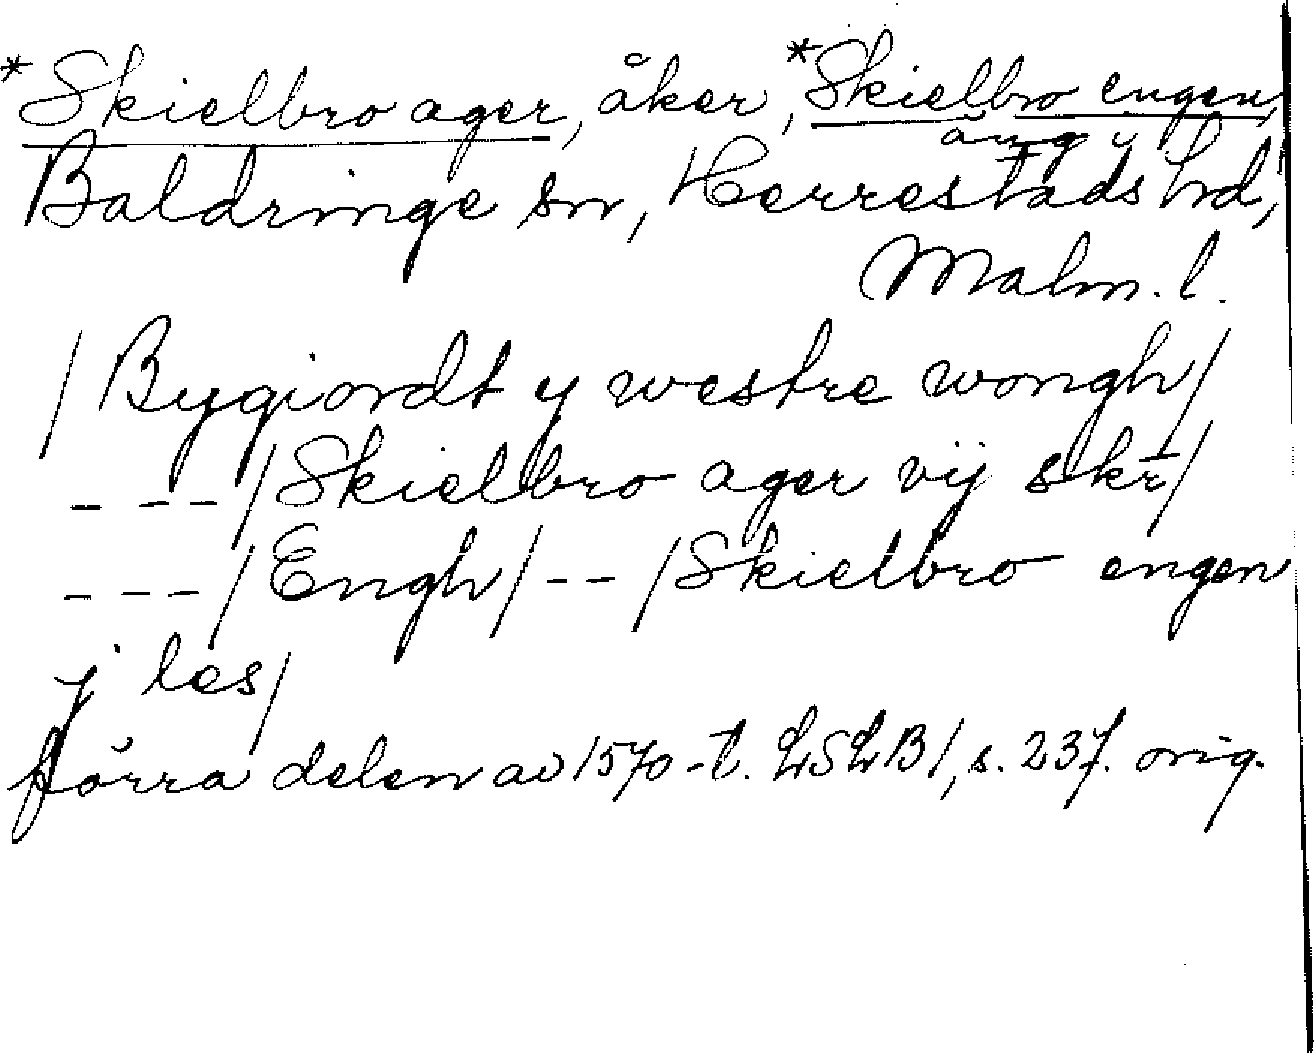 *Skielbro ager, åker, *Skielbro engen,
äng
Baldringe sn, Herrestads hd,
Malm. l.
/Bygiordt y westre wongh/
- - -/Skielbro ager vij skr/
- - - -/Engh/- - -/Skielbro engen
j les/
förra delen av 1570-t. LSLB1, s. 237. orig.